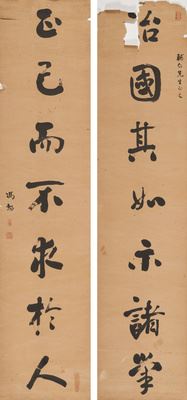 治國其如示諸掌
正己而不求於人